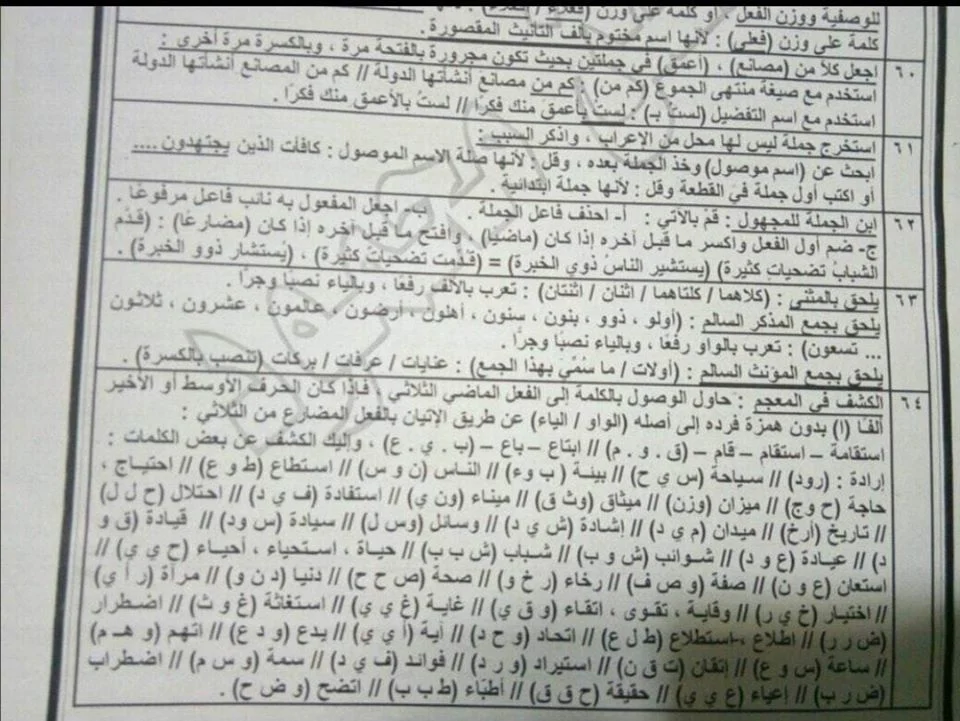 للوصفية ووزن الفعل ، أو كلمة على وزن (فعلاء / أفعلاء) : لأنها
كلمة على وزن (فعلى) : لأنها اسم مختوم بألف التأنيث المقصورة .
٦٠ اجعل كلاً من (مصانع) ، (أعمق) في جملتين بحيث تكون مجرورة بالفتحة مرة ، وبالكسرة مرة أخرى :
استخدم مع صيغة منتهى الجموع (كم من) : كم من مصانعَ أنشأتها الدولة // كم من المصانع أنشأتها الدولة
استخدم مع اسم التفضيل (لست بـ) : لستُ بأعمقَ منك فكرًا // لستُ بالأعمق منك فكرًا .
٦١ استخرج جملة ليس لها محل من الإعراب ، واذكر السبب :
ابحث عن (اسم موصول) وخذ الجملة بعده ، وقل : لأنها صلة الاسم الموصول : كافأت الذين يجتهدون ....
أو اكتب أول جملة في القطعة وقل : لأنها جملة ابتدائية .
٦٢ ابن الجملة للمجهول : قم بالآتي : أ- احذف فاعل الجملة . ب- اجعل المفعول به نائب فاعل مرفوعًا .
ج- ضم أول الفعل واكسر ما قبل آخره إذا كان (ماضيًا) . وافتح ما قبل آخره إذا كان (مضارعًا) : (قدّم
الشبابُ تضحياتٍ كثيرة) (يستشير الناسُ ذوي الخبرة) = (قُدِّمت تضحياتٌ كثيرة) ، (يُستشار ذوو الخبرة) .
٦٣ يلحق بالمثنى : (كلاهما / كلتاهما / اثنان / اثنتان) : تعرب بالألف رفعًا ، وبالياء نصبًا وجرًا .
يلحق بجمع المذكر السالم : (أولو ، ذوو ، بنون ، سنون ، أهلون ، أرضون ، عالمون ، عشرون ، ثلاثون
... تسعون) : تعرب بالواو رفعًا ، وبالياء نصبًا وجرًا .
يلحق بجمع المؤنث السالم : (أولات / ما سُمِّيَ بهذا الجمع) : عنايات / عرفات / بركات (تنصب بالكسرة) .
٦٤ الكشف في المعجم : حاول الوصول بالكلمة إلى الفعل الماضي الثلاثي ، فإذا كان الحرف الأوسط أو الأخير
ألفًا (ا) بدون همزة فرده إلى أصله (الواو / الياء) عن طريق الإتيان بالفعل المضارع من الثلاثي :
استقامة – استقام – قام – (ق . و . م) // ابتاع – باع – (ب . ي . ع) ، وإليك الكشف عن بعض الكلمات :
إرادة : (رود) // سياحة (س ي ح) // بيئة (ب وء) // الناس (ن و س) // استطاع (ط و ع) // احتياج ،
حاجة (ح وج) // ميزان (وزن) // ميثاق (وث ق) // ميناء (ون ي) // استفادة (ف ي د) // احتلال (ح ل ل)
// تاريخ (أرخ) // ميدان (م ي د) // إشادة (ش ي د) // وسائل (وس ل) // سيادة (س ود) // قيادة (ق و
د) // عيادة (ع و د) // شوائب (ش و ب) // شباب (ش ب ب) // حياة ، استحياء ، أحياء (ح ي ي) //
استعان (ع و ن) // صفة (و ص ف) // رخاء (ر خ و) // صحة (ص ح ح) // دنيا (د ن و) // مرآة (ر أ ي)
// اختيار (خ ي ر) // وقاية ، تقوى ، اتقاء (و ق ي) // غاية (غ ي ي) // استغاثة (غ و ث) // اضطرار
(ض ر ر) // اطلاع ، استطلاع (ط ل ع) // اتحاد (و ح د) // آية (أ ي ي) // يدع (و د ع) // اتهم (و هـ م)
// ساعة (س و ع) // إتقان (ت ق ن) // استيراد (و ر د) // فوائد (ف ي د) // سمة (و س م) // اضطراب
(ض ر ب) // إعياء (ع ي ي) // حقيقة (ح ق ق) // أطباء (ط ب ب) // اتضح (و ض ح) .